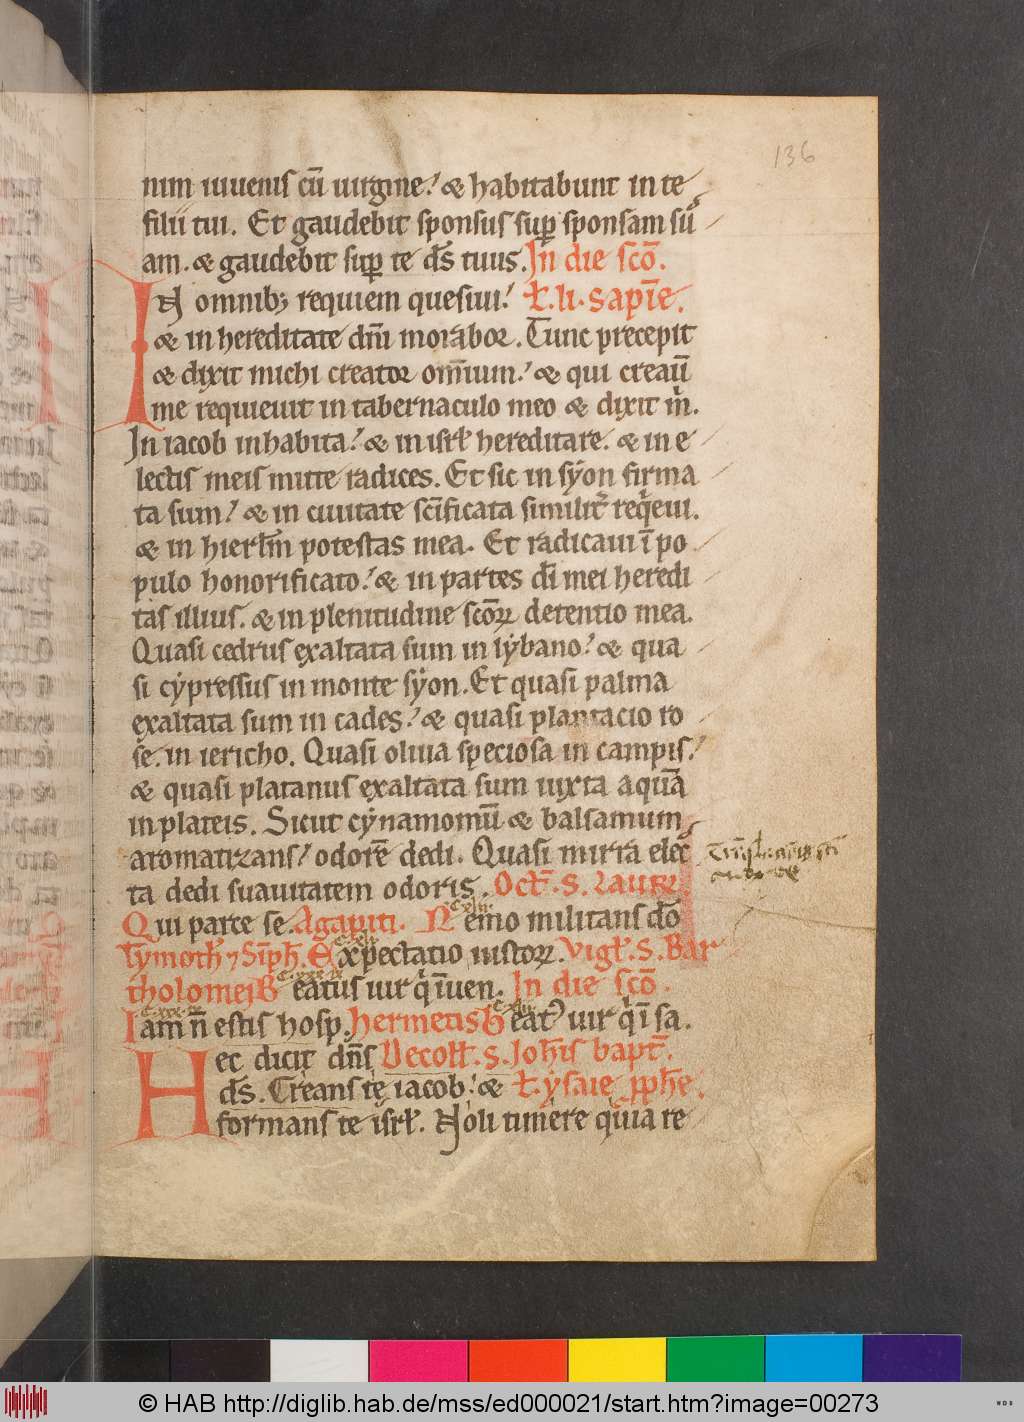 136
nim iuuenis cū uirgine. & habitabunt in te
filii tui. Et gaudebit sponsus sup sponsam sū
am. & gaudebit sup te ds̄ tuus. In die scō.
IN omnibȝ requiem quesiui. Ł. li. Sapīe.
& in hereditate dnī morabor. Tunc precepit
& dixit michi creator omīum. & qui creauit
me requieuit in tabernaculo meo & dixit m̄.
In iacob inhabita. & in isrł hereditare. & in e
lectis meis mitte radices. Et sic in syon firma
ta sum. & in ciuitate scīficata similit reqeui.
& in hierłm potestas mea. Et radicaui ī po
pulo honorificato. & in partes dī mei heredi
tas illius. & in plenitudine scōꝝ detentio mea.
Quasi cedrus exaltata sum in lybano. & qua
si cypressus in monte syon. Et quasi palma
exaltata sum in cades. & quasi plantacio ro
se. in iericho. Quasi oliua speciosa in campis.
& quasi platanus exaltata sum iuxta aquā
in plateis. Sicut cynamomū & balsamum
aromatizans. odorē dedi. Quasi mirra elec
ta dedi suauitatem odoris. Oct. S. Laurē.
Qui parce se. Agapiti. Nemo militans dō
Tymoth ⁊ Simph. Expectatio iustoꝝ. Vigł. S. Bar
tholomei Beatus uir q īuen. In die scō.
Iam n̄ estis hosp. Hermetis Beat uir qi ī sa.
Hec dicit dn̄s Decołł. S. Joh̄is bapt.
ds̄. Creans te iacob. & Ł. ysaie pph̄e.
formans te isrł. Noli timere quia re
© HAB http://diglib.hab.de/mss/ed000021/start.htm?image=00273